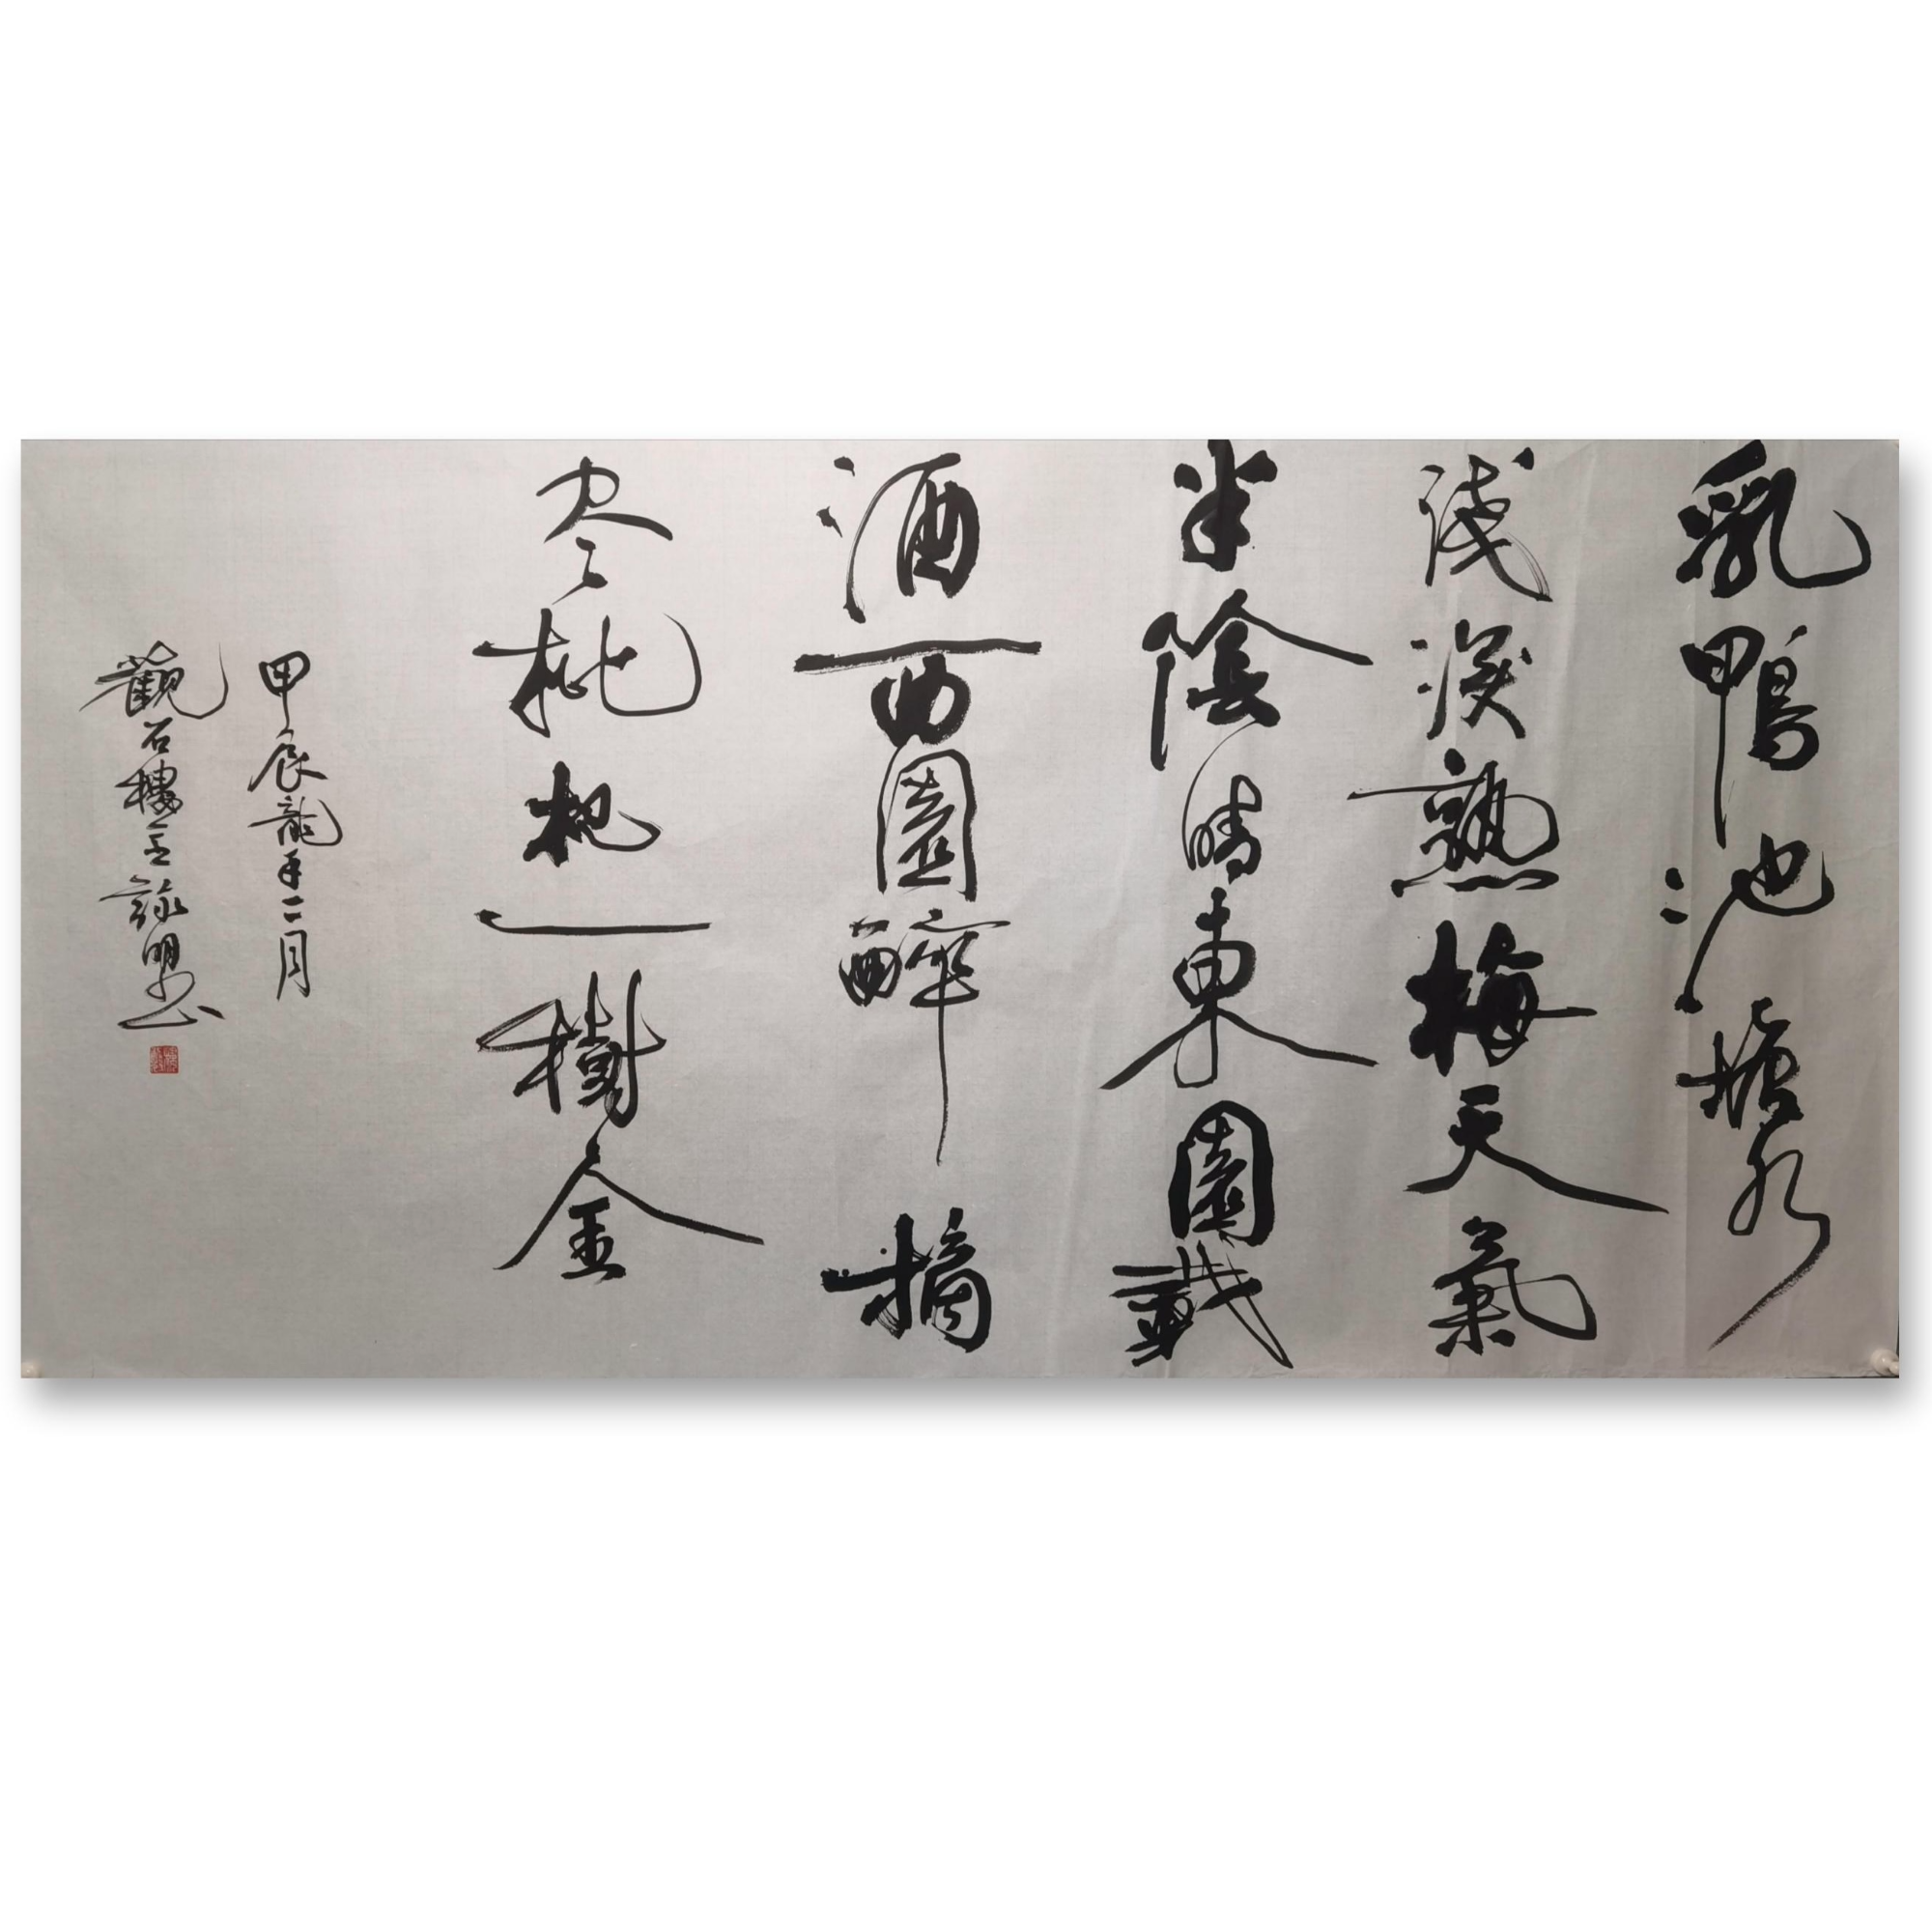 乳鴨池塘水
淺深熟梅天氣
半陰晴東園載
酒西園醉摘
尽枇杷一樹金
甲辰龍年二月
觀石樓主明书